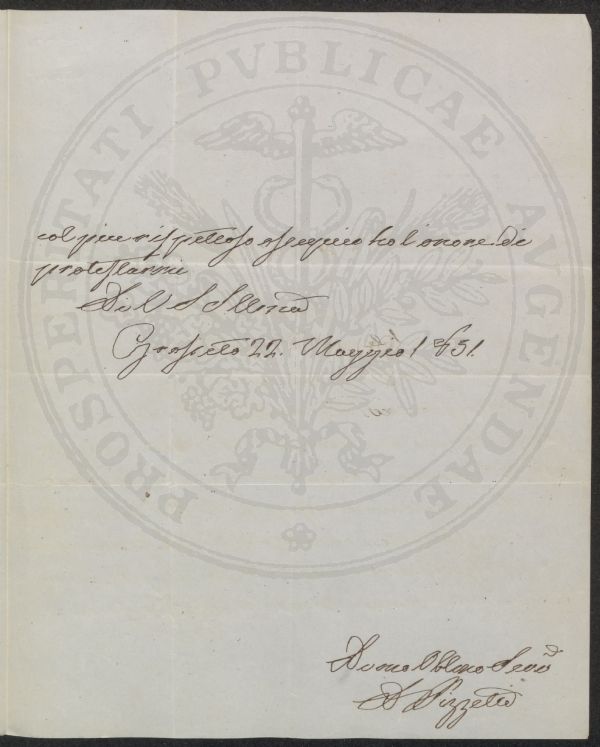 PROSPERITATI PVBLICAE AVGENDAE
col piu rispettoso ossequio ho l'onore di
protestarmi
Di V S Illma
Grosseto 22. Maggio 1851.
Devmo Obblmo Servo
Pizzetti